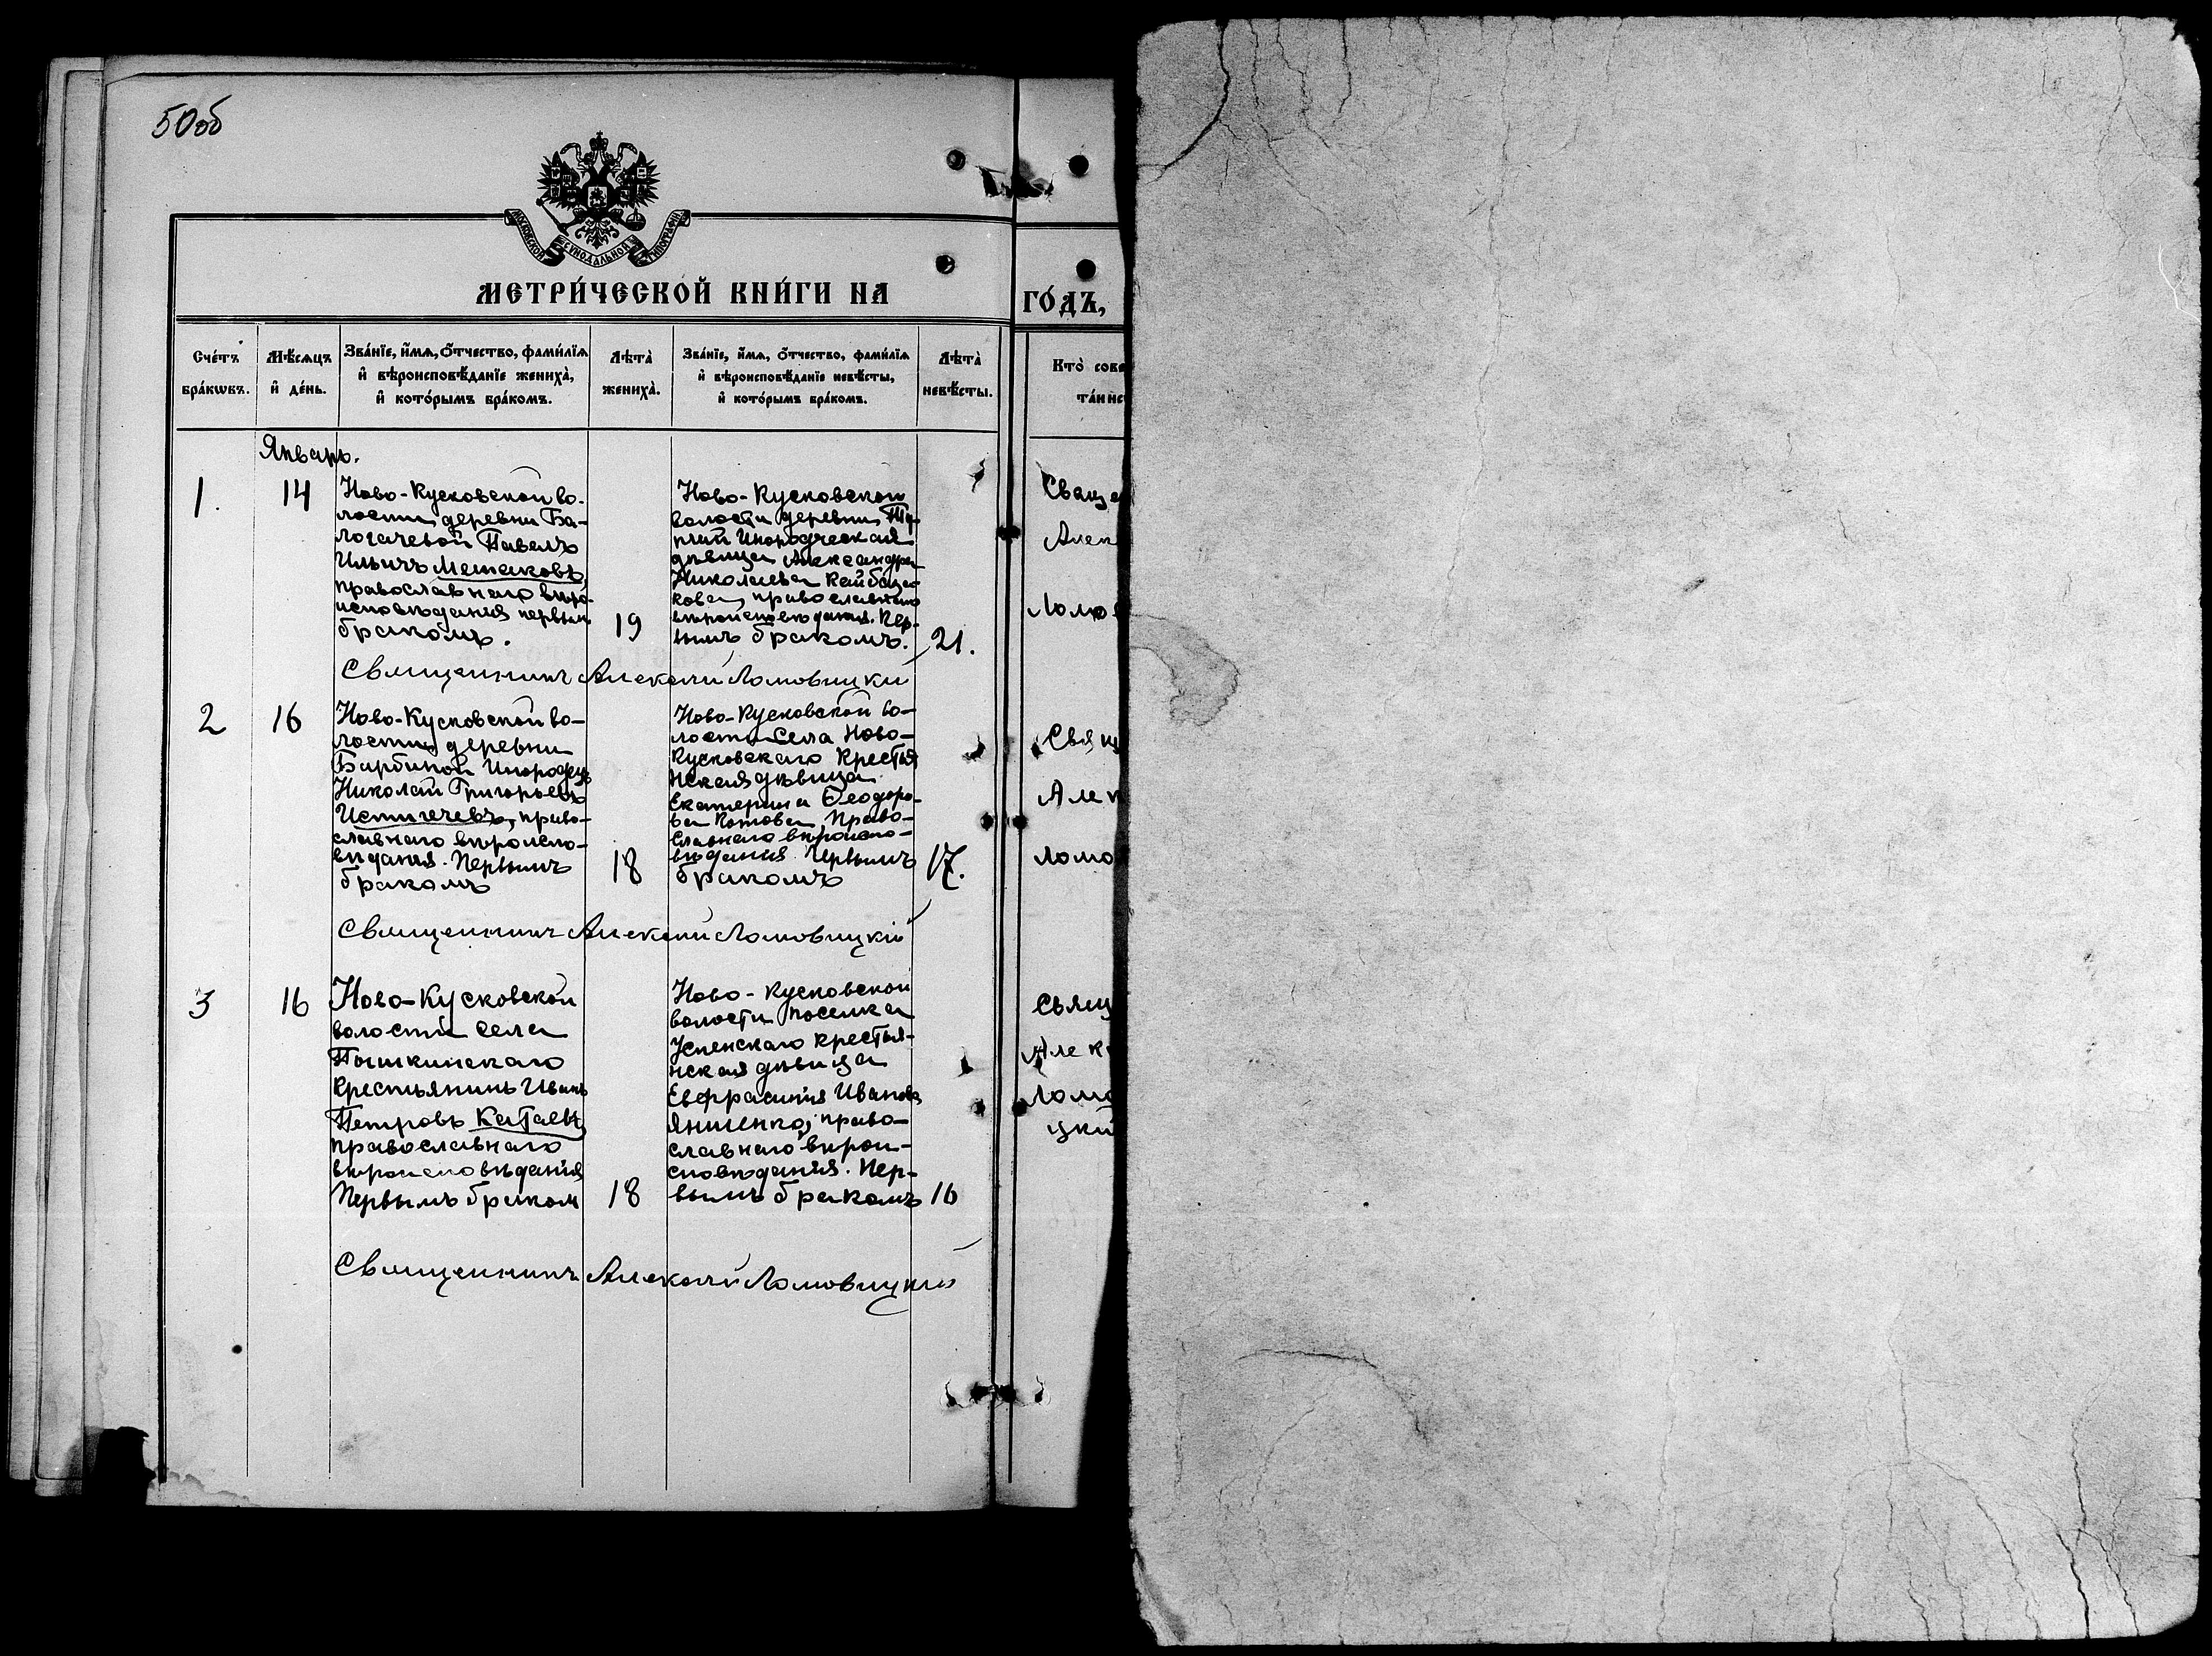 50об
МОСКОВСКОЙ СѴНОДАЛЬНОЙ ТИПОГРАФІИ
МЕТРИ́ЧЕСКОЙ КНИ́ГИ НА
ГО́ДЪ,
Сче́тъ бра́кѡвъ.
Мѣ́сѧцъ и҆ де́нь.
Зва́нїе, и҆́мѧ, ѻ҆́тчество, фамилїѧ и҆ вѣроисповѣ́данїе жениха̀, и҆ кото́рымъ бра́комъ.
Лѣта̀ жениха̀.
Зва́нїе, и҆́мѧ, ѻ҆́тчество, фамилїѧ и҆ вѣроисповѣ́данїе невѣ́сты, и҆ кото́рымъ бра́комъ.
Лѣта̀ невѣ́сты.
Кто̀ сове
та́инс
Январь.
1.
14
Ново-Кусковской во-
лости деревни Ба-
логачевой Павелъ
Ильичъ Мешковъ,
православнаго вѣро-
исповѣданія первымъ
бракомъ.
19
Ново-Кусковской
волости деревни
Инородческая
дѣвица Александра
Николаева
православнаго
вѣроисповѣданія. Пер-
вымъ бракомъ.
21.
Священникъ Алексѣй Ломовицкій
2
16
Ново-Кусковской во-
лости деревни
Барбиной Инородецъ
Николай Григорьевъ
право-
славнаго вѣроиспо-
вѣданія. Первымъ
бракомъ
18
Ново-Кусковской во-
лости села Ново-
Кусковскаго Крестья
нская дѣвица
Екатерина Ѳеодоро-
ва Котова, Право-
славнаго вѣроиспо-
вѣданія. Первымъ
бракомъ
17.
Священникъ Алексѣй Ломовицкій
3
16
Ново-Кусковской
волости села
Пышкинскаго
Крестьянинъ Иванъ
Петровъ
православнаго
вѣроисповѣданія
Первымъ браком
18
Ново-Кусковской
волости поселка
Успенскаго крестья-
нская дѣвица
Евфрасинія Иванова
Яншенко, право-
славнаго вѣрои-
сповѣданія. Пер-
вымъ бракомъ
16
Священникъ Алексѣй Ломовицкій